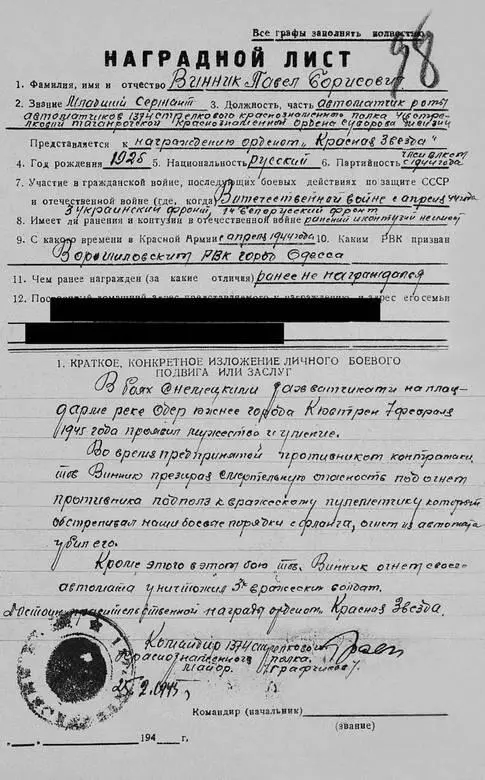 Все графы заполнять полностью
98
НАГРАДНОЙ ЛИСТ
1. Фамилия, имя и отчество Винник Павел Борисович
2. Звание Младший Сержант 3. Должность, часть автоматчик роты
автоматчиков 1374 стрелкового краснознаменного полка
Таганрогской Краснознаменной ордена Суворова дивизии
Представляется к награждению орденом "Красная Звезда"
4. Год рождения 1926 5. Национальность русский 6. Партийность член ВЛКСМ с 1941 года
7. Участие в гражданской войне, последующих боевых действиях по защите СССР
и отечественной войне (где, когда) В отечественной войне с апреля 44 года
3 украинский фронт, 1й белорусский фронт
8. Имеет ли ранения и контузии в отечественной войне ранений и контузии не имеет
9. С какого времени в Красной Армии с апреля 1944 года 10. Каким РВК призван
Ворошиловским РВК город Одесса
11. Чем ранее награжден (за какие отличия) ранее не награждался
12. Постоянный домашний адрес представляемого к награждению и адрес его семьи
1. КРАТКОЕ, КОНКРЕТНОЕ ИЗЛОЖЕНИЕ ЛИЧНОГО БОЕВОГО
ПОДВИГА ИЛИ ЗАСЛУГ
В боях с немецкими захватчиками на плац-
дарме реке Одер южнее города Кюстрен 7 февраля
1945 года проявил мужество и умение.
Во время предпринятой противником контратаки
тов Винник презирая смертельную опасность под огнем
противника подполз к вражескому пулеметчику который
обстреливал наши боевые порядки с фланга, огнем из автомата
убил его.
Кроме этого в этом бою тов. Винник огнем своего
автомата уничтожил 5 вражеских солдат.
Достоин правительственной награды орденом Красная Звезда.
Командир 1374 стрелкового
Краснознаменного полка.
Майор. /Графчиков/.
25.2.1945г.
Командир (начальник)
(звание)
194 г.